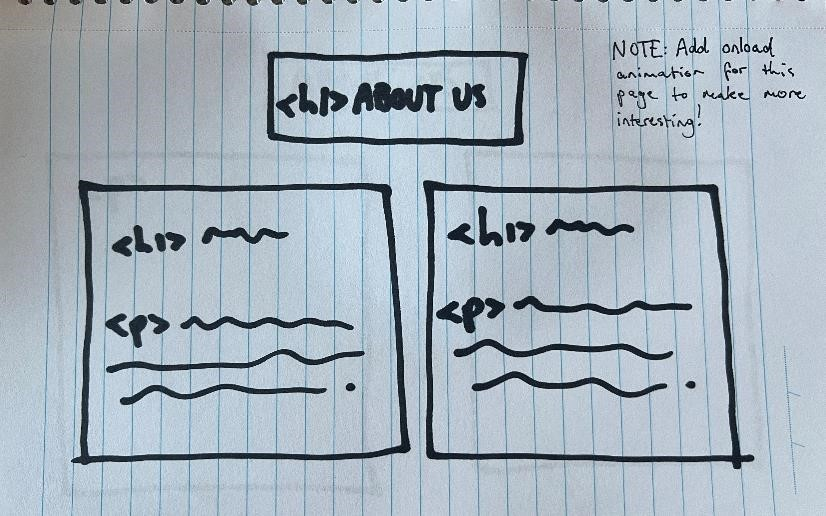 <h1> ABOUT US
NOTE: Add onload
animation for this
page to make more
interesting!
<h1>
<p>
<h1>
<p>